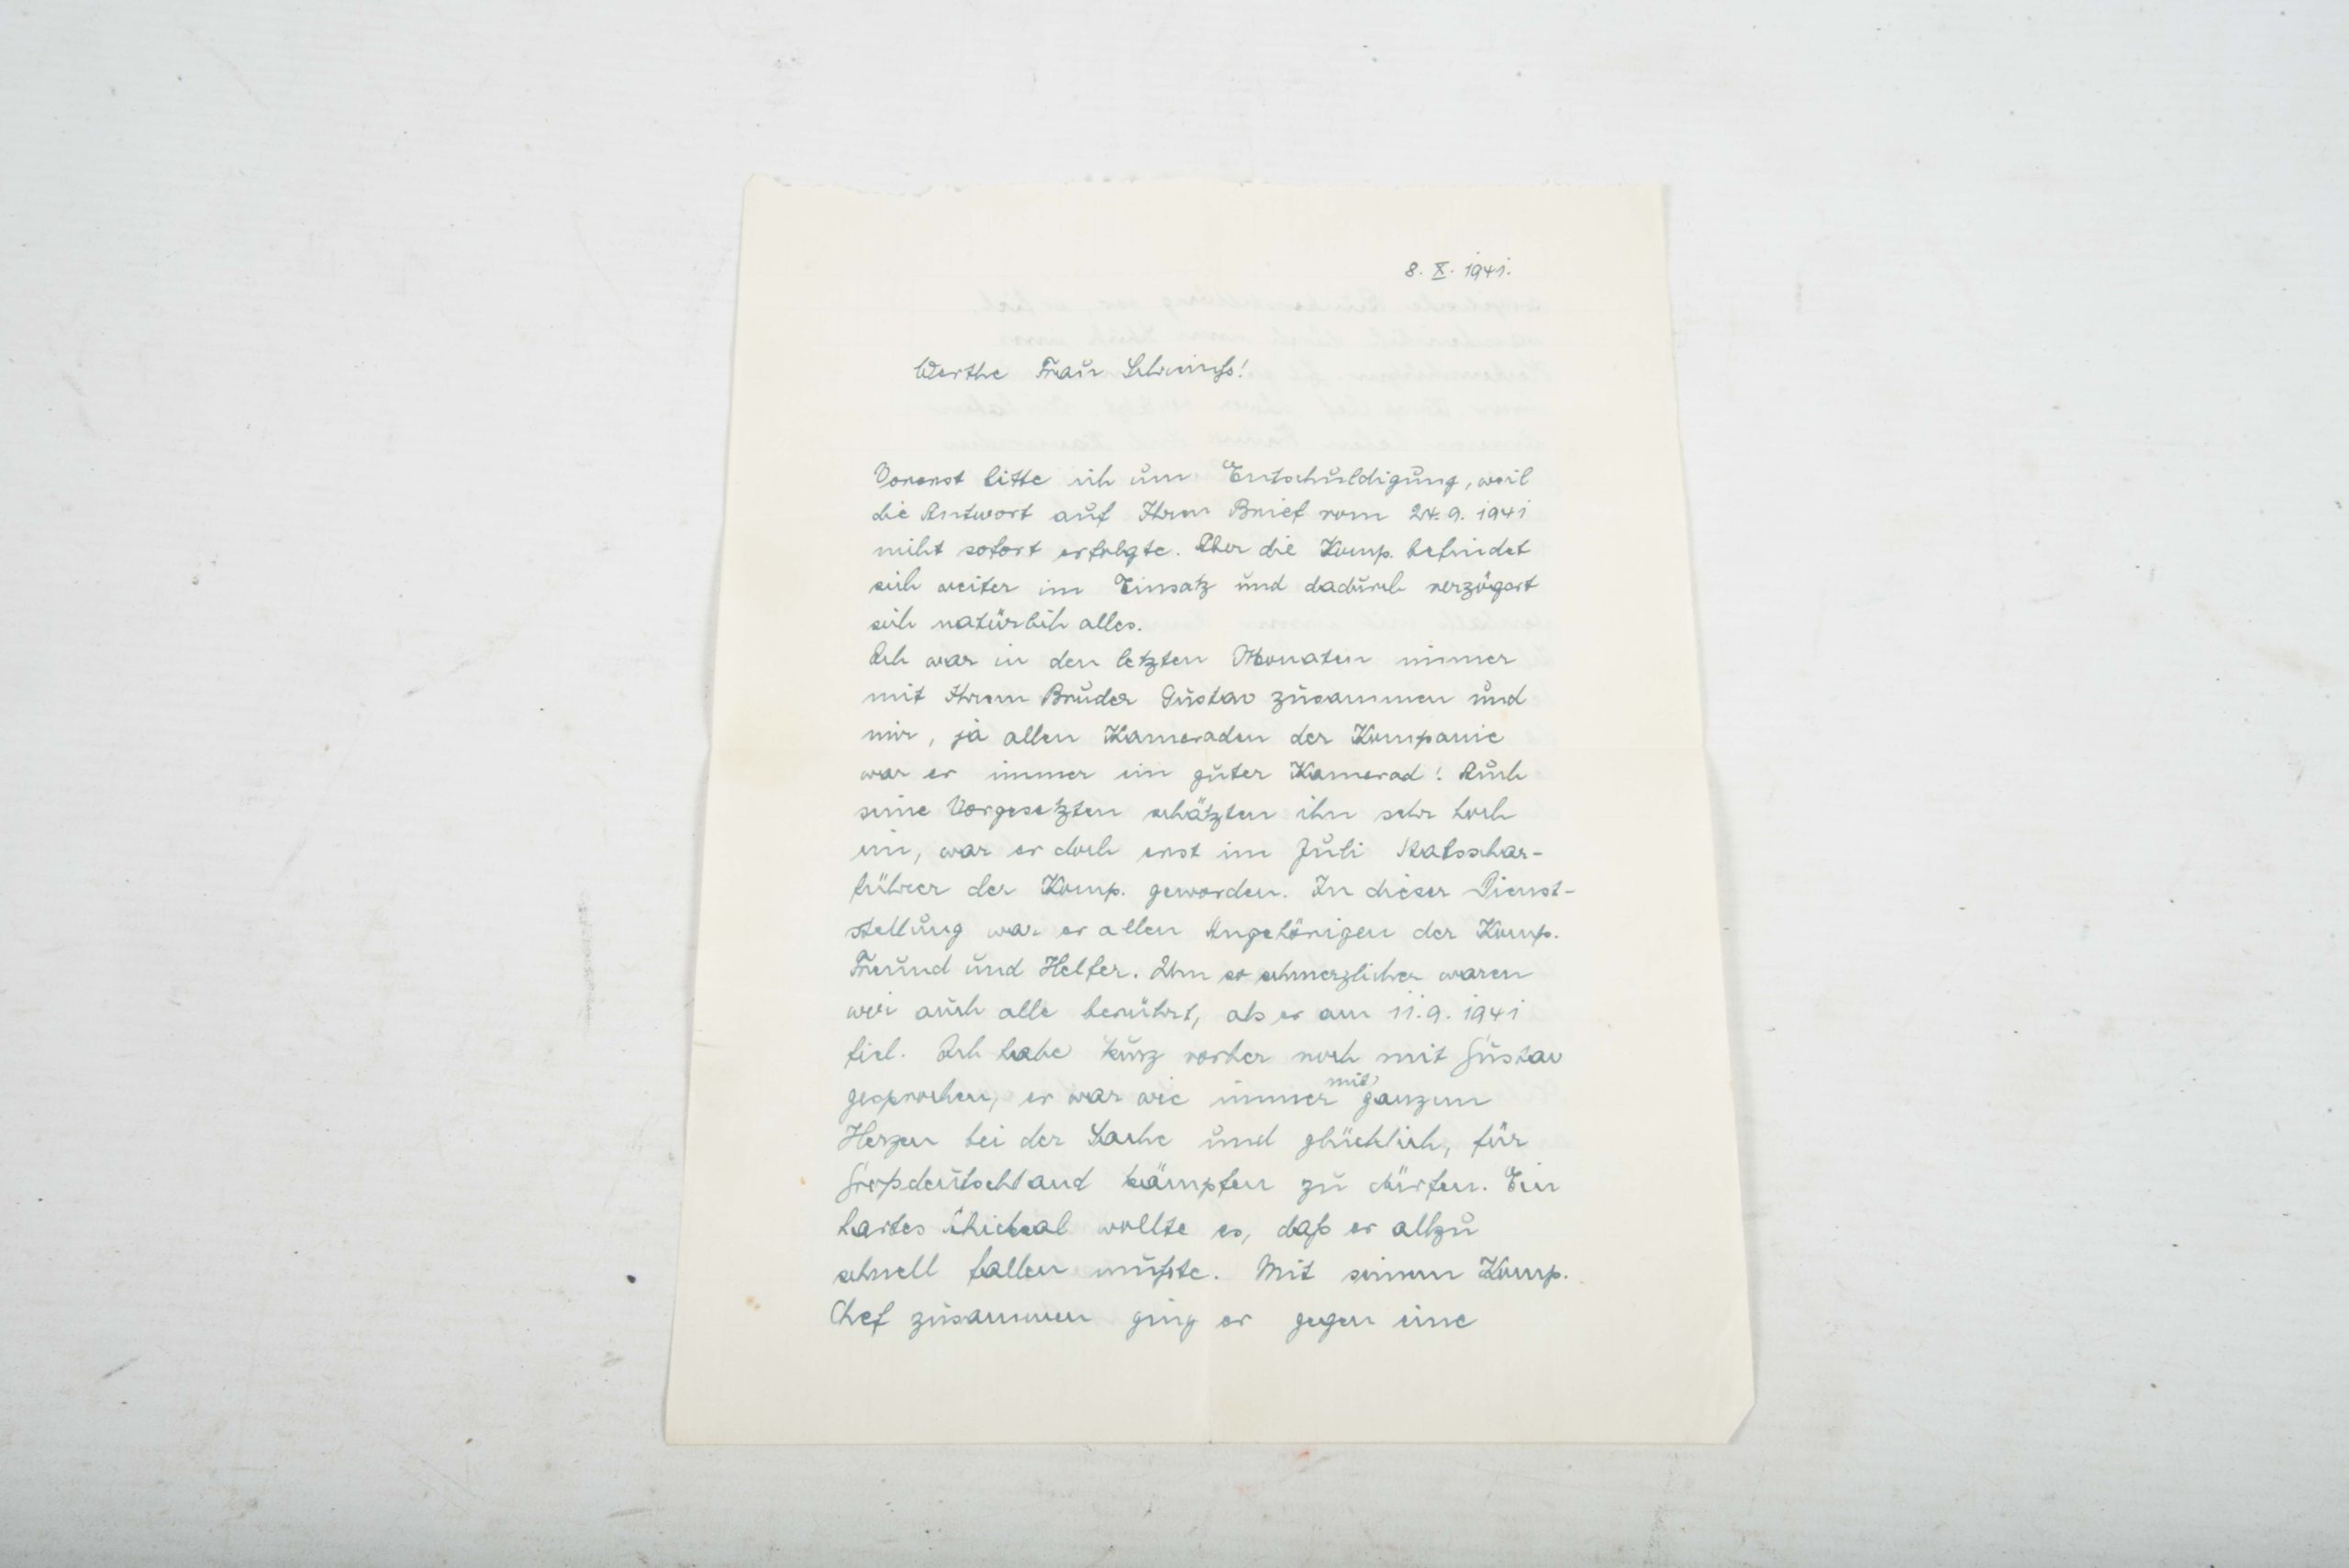 8. X. 1941.
Werthe Frau
Vorerst bitte ich um Entschuldigung, weil
die Antwort auf Ihren Brief vom 24.9.1941
nicht sofort erfolgte. Aber die Komp. befindet
sich weiter im Einsatz und dadurch verzögert
sich natürlich alles.
Ich war in den letzten Monaten immer
mit Ihrem Bruder Gustav zusammen und
mir, ja allen Kameraden der Kompanie
war er immer ein guter Kamerad! Auch
seine Vorgesetzten schätzten ihn sehr hoch
ein, war er doch erst im Juli
führer der Komp. geworden. In dieser Dienst-
stellung war er allen Angehörigen der Komp.
Freund und Helfer. Um so schmerzlicher waren
wir auch alle berührt, als er am 11.9.1941
fiel. Ich habe kurz vorher noch mit Gustav
gesprochen, er war wie immer mit ganzem
Herzen bei der Sache und glücklich, für
Großdeutschland kämpfen zu dürfen. Ein
hartes Schicksal wollte es, daß er allzu
schnell fallen mußte. Mit seinem Komp.
Chef zusammen ging er gegen eine